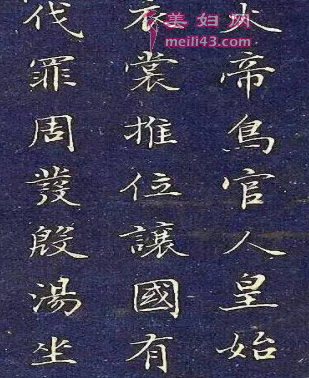 火帝鳥官人皇始
衣裳推位讓國有
伐罪周發殷湯坐
美妇网
meili43.com